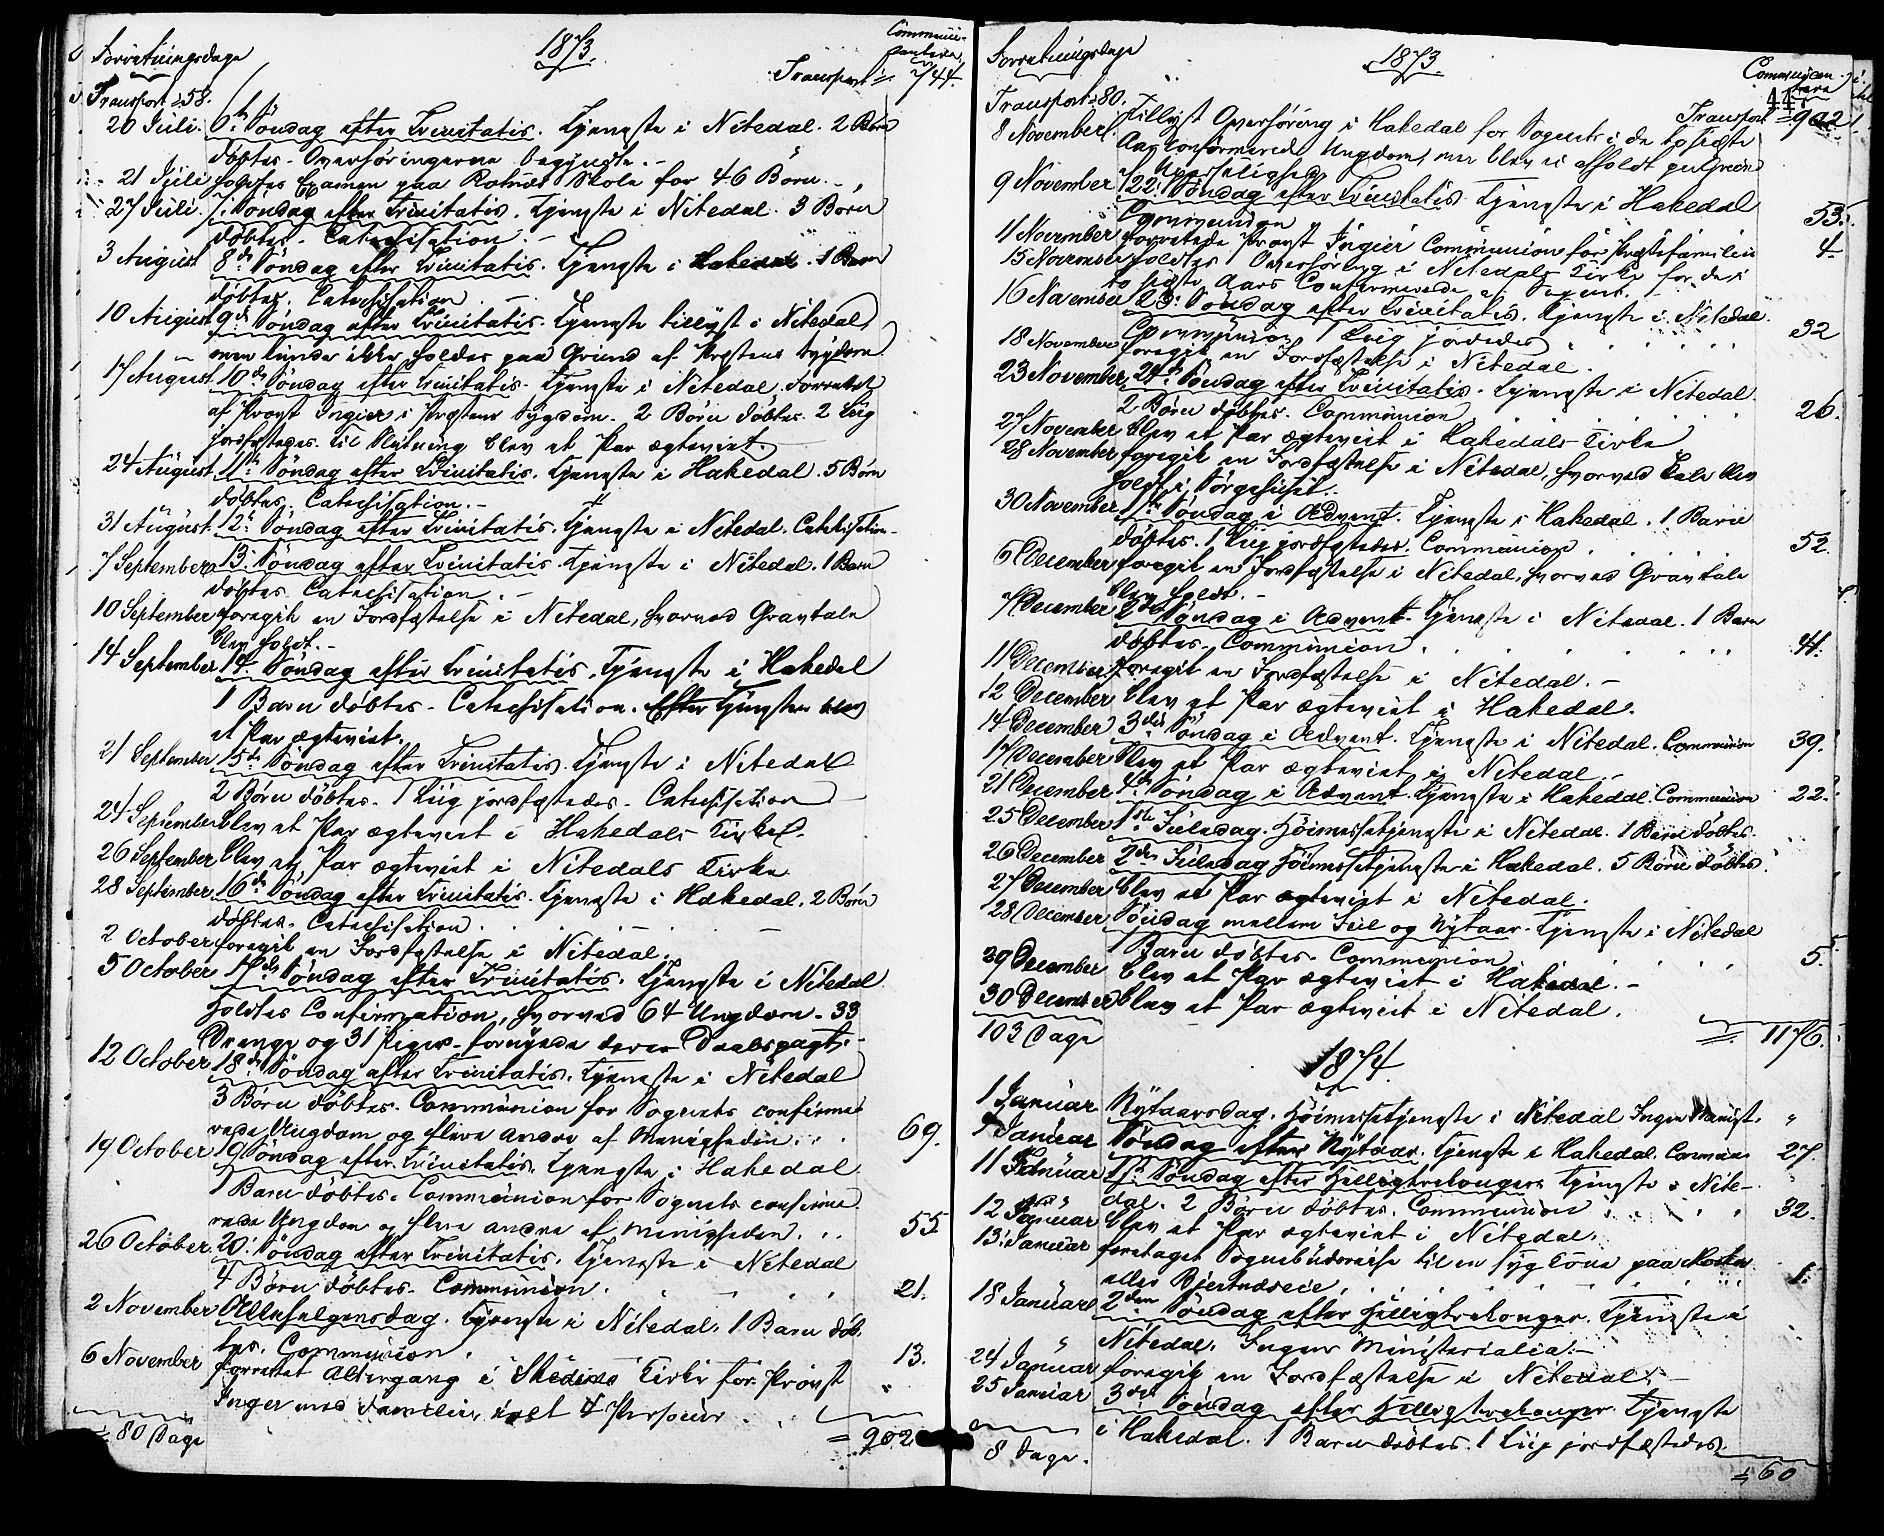 Forretningsdage 1873. Communicantere
Transport = 58. Transport = 744.
20 Juli. 6te Søndag efter Trinitatis. Tjeneste i Nitedal. 2 Børn
døbtes. Overhøringerne begyndte. -
21 Juli holdtes Examen paa Rotnæs Skole for 46 Børn. -
27 Juli. 7: Søndag efter Trinitatis. Tjeneste i Nitedal. 3 Børn
døbtes. Catechisation. -
3 August 8de Søndag efter Trinitatis. Tjeneste i Hakedal. 1 Barn
døbtes. Catechisation. -
10 August 9de Søndag efter Trinitatis. Tjeneste tillyst i Nitedal,
men kunde ikke holdes paa Grund af Præstens Sygdom.
17 August 10de Søndag efter Trinitatis. Tjeneste i Nitedal forrettet
af Provst Ingier i Præstens Sygdom. 2 Børn døbtes. 2 Liig
jordfæstedes. Til Slutning blev et Par ægteviet. -
24 August 11te Søndag efter Trinitatis. Tjeneste i Hakedal. 5 Børn
døbtes. Catechisation. -
31 August. 12te Søndag efter Trinitatis. Tjeneste i Nitedal. Catechisation. -
7 September 13: Søndag efter Trinitatis. Tjeneste i Nitedal. 1 Barn
døbtes. Catechisation. -
10 September foregik en Jordfæstelse i Nitedal, hvorved Gravtale
blev holdt. -
14 September 14. Søndag efter Trinitatis. Tjeneste i Hakedal
1 Barn døbtes. Catechisation. Efter Tjenesten blev
et Par ægteviet.
21 September 15de Søndag efter Trinitatis. Tjeneste i Nitedal
2 Børn døbtes. 1 Liig jordfæstedes. Catechisation
24 September blev et Par ægteviet i Hakedals Kirke. -
26 September blev et Par ægteviet i Nitedals Kirke
28 September 16de Søndag efter Trinitatis. Tjeneste i Hakedal. 2 Børn
døbtes. Catechisation. -
2 October foregik en Jordfæstelse i Nitedal.
5 October 17de Søndag efter Trinitatis. Tjeneste i Nitedal
holdtes Confirmation, hvorved 64 Ungdom - 33
Drenge og 31 Piger - fornyede deres Daabspagt. -
12 October 18de Søndag efter Trinitatis. Tjeneste i Nitedal
3 Børn døbtes. Communion for Sognets confirme-
rede Ungdom og flere andre af Menigheden. . . 69.
19 October 19 Søndag efter Trinitatis. Tjeneste i Hakedal.
1 Barn døbtes. Communion for Sognets confirme-
rede Ungdom og flere andre af Menigheden. . . 55.
26 October 20: Søndag efter Trinitatis. Tjeneste i Nitedal
4 Børn døbtes. Communion. 21.
2 November Allehelgensdag. Tjeneste i Nitedal. 1 Barn døb-
tes. Communion. 13.
6 November forrettet Altergang i Skedsmo Kirke for Provst "
Ingier med Familie, i alt 4 Personer
= 80 Dage = 902
Forretningsdage 1873. Communicantere
Transport = 80. 447 Transport = 902
8 November. tillyst Overhøring i Hakedal for Sognets i de to sidste
Aar Confirmerede Ungdom, men blev ei afholdt paa Grund
af Upasselighed
9 November 22: Søndag efter Trinitatis Tjeneste i Hakedal
Communion 53.
11 November forrettede Provst Ingier Communion for Præstefamilien 4
15 November holdtes Overhøring i Nitedals Kirke for de i
to sidste Aars Confirmerede af Sognet.
16 November 23: Søndag efter Trinitatis. Tjeneste i Nitedal.
Communion. 1 Liig jordedes 32
18 November foregik en Jordfæstelse i Nitedal.
23 November 24de Søndag efter Trinitatis. Tjeneste i Nitedal.
2 Børn døbtes. Communion 26.
27 November blev et Par ægteviet i Hakedals Kirke
28 November foregik en Jordfæstelse i Nitedal, hvorved Tale blev
holdt i Sørgehuset.
30 November 1ste Søndag i Advent. Tjeneste i Hakedal. 1 Barn
døbtes. 1 Liig jordfæstedes. Communion. 52.
6 December foregik en Jordfæstelse i Nitedal, hvorved Gravtale
blev holdt. -
7 December 2den Søndag i Advent. Tjeneste i Nitedal. 1 Barn
døbtes. Communion 41.
11 December foregik en Jordfæstelse i Nitedal. -
12 December blev et Par ægteviet i Hakedal.
14 December 3die Søndag i Advent. Tjeneste i Nitedal. Communion 39.
17 December blev et Par ægteviet i Nitedal. -
21 December 4de Søndag i Advent. Tjeneste i Hakedal. Communion 22.
25 December 1ste Juledag. Høimessetjeneste i Nitedal. 1 Barn døbtes.
26 December 2den Juledag Høimessetjeneste i Hakedal. 5 Børn døbtes.
27 December blev et Par ægteviet i Nitedal.
28 December Søndag mellem Juul og Nytaar. Tjeneste i Nitedal
1 Barn døbtes. Communion 5.
29 December blev et Par ægteviet i Hakedal. -
30 December blev et Par ægteviet i Nitedal.
103 Dage = 1176.
1874.
1 Januar Nytaarsdag. Høimessetjeneste i Nitedal Ingen Minist. "
4 Januar Søndag efter Nytaar. Tjeneste i Hakedal. Commun. 27.
11 Januar 1ste Søndag efter Helligtrekonger. Tjeneste i Nite-
dal. 2 Børn døbtes. Communion 32.
12 Januar blev et Par ægteviet i Nitedal.
13: Januar foretaget Sognebudsreise til en syg Kone paa
eller Bjertnæseie. 1.
18 Januar 2den Søndag efter Helligtrekonger. Tjeneste i
Nitedal. Ingen Ministerialia. -
24 Januar foregik en Jordfæstelse i Nitedal. -
25 Januar 3die Søndag efter Helligtrekonger. Tjeneste
i Hakedal. 1 Barn døbtes. 1 Liig jordfæstedes.
8 Dage. = 60